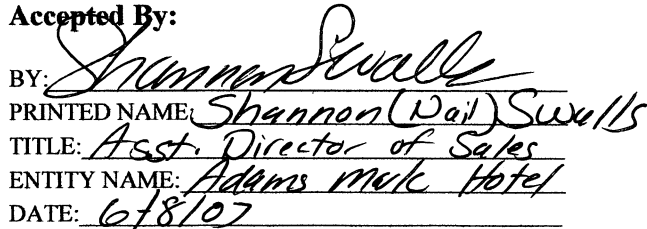 Accepted By:
BY: Shannon Swalls
PRINTED NAME: Shannon (Nail) Swalls
TITLE: Asst. Director of Sales
ENTITY NAME: Adams Mark Hotel
DATE: 6/8/07